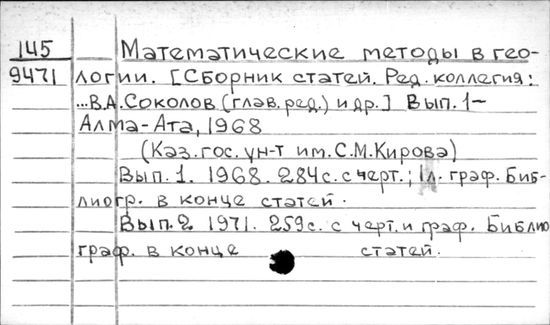 145 Математические методы в гео-
9471 логии. [Сборник статей. Ред. коллегия:
...В.А. Соколов (глав. ред.) и др.] Вып. 1-
Алма-Ата, 1968
(Каз. гос. ун-т им. С.М. Кирова)
Вып. 1. 1968. 284с. с черт.; 1л. граф. Биб-
лиогр. в конце статей.
Вып. 2 1971. 259с. с черт. и граф. Библио
граф. в конце статей.